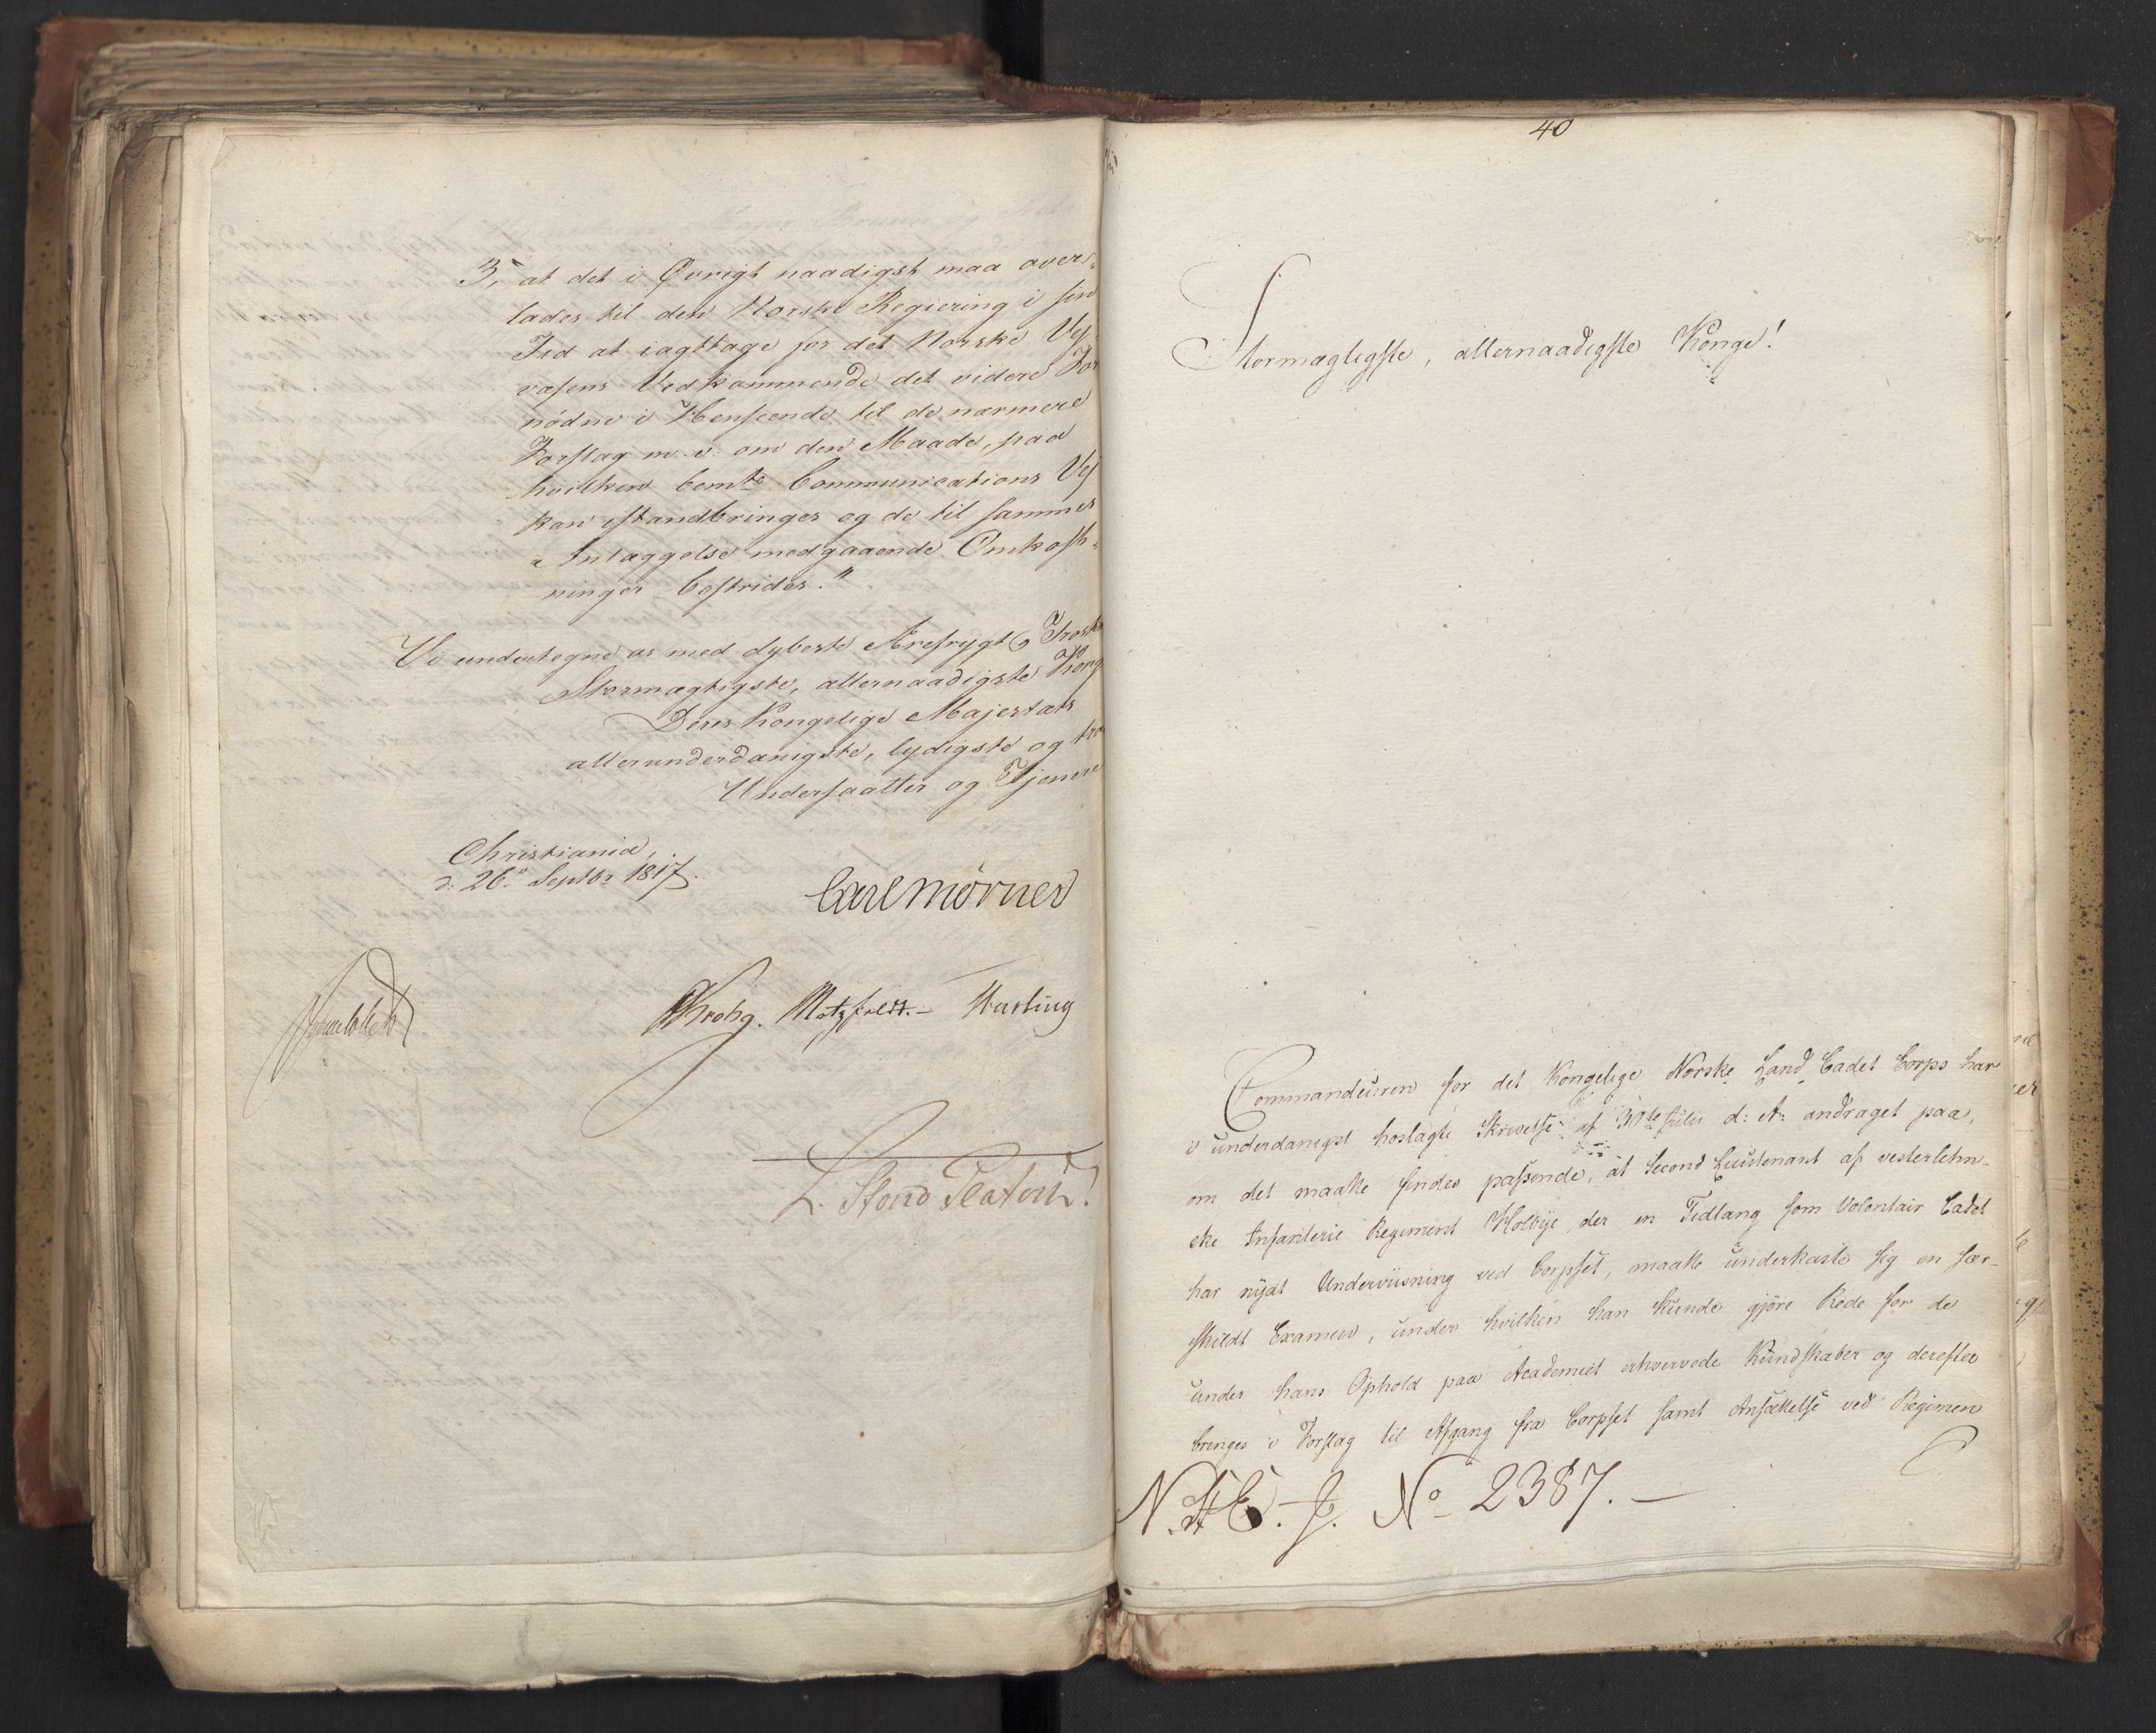 3, at det i Øvrigt naadigst maa over-
lades til den Norske Regiering i sin
Tid at iagttage for det Norske Vej-
væsens Vedkommende det videre For
nödne i Henseende til de nærmere
Forslag m. v. om den Maade, paa
hvilken bemte Communications Vej
kan istandbringes og de til sammes
Anlæggelse medgaaende Omkost-
ninger bestrides."
Vi undertegne os med dybeste Ærefrygt, Trosk
Stormægtigste, allernaadigste Kong
Deres Kongelige Majestæts
allerunderdanigste, lydigste og tro
Undersaatter og Tjenere
Christiania,
d: 26de Septbr 1817.
Carl Mörner
Krohg. Motzfeldt.-
L. Stoud Platou
40
Stormægtigste, allernaadigste Konge!
Commandeuren for det Kongelige Norske Land Cadet Corps har
i underdanigst hoslagte Skrivelse af 30te Julii d: A: andraget paa,
om det maatte findes passende, at Second Lieutenant af vesterlehn-
ske Infanterie Regiment Holbye, der en Tidlang som Volontair Cadet
har nydt Underviisning ved Corpset, maatte underkaste sig en sær-
skildt Examen, under hvilken han kunde gjøre Rede for de
under hans Ophold paa Academiet erhvervede Kundskaber og derefter
bringes i Forslag til Afgang fra Corpset samt Ansættelse ved Regimen
No 2387.-